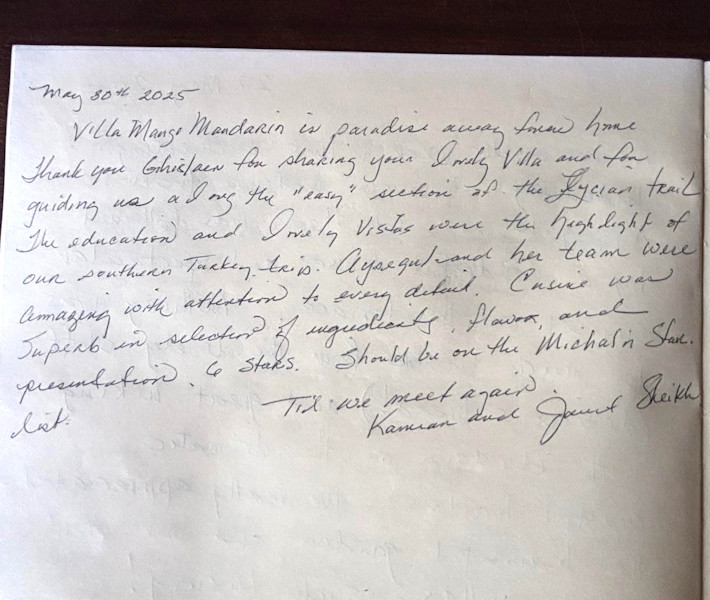 May 30th 2025
Villa Mango Mandarin is paradise away from home
Thank you Ghislaen for sharing your lovely Villa and for
guiding us along the "easy" section of the Lycian trail
The education and lovely Vistas were the highlight of
our southern Turkey trip. Aysegul and her team were
amazing with attention to every detail. Cusine was
superb in selection of ingredients, flavor, and
presentation. 6 stars. Should be on the Michalin Star.
list.
Til we meet again.
Kamran and Janet Sheikh